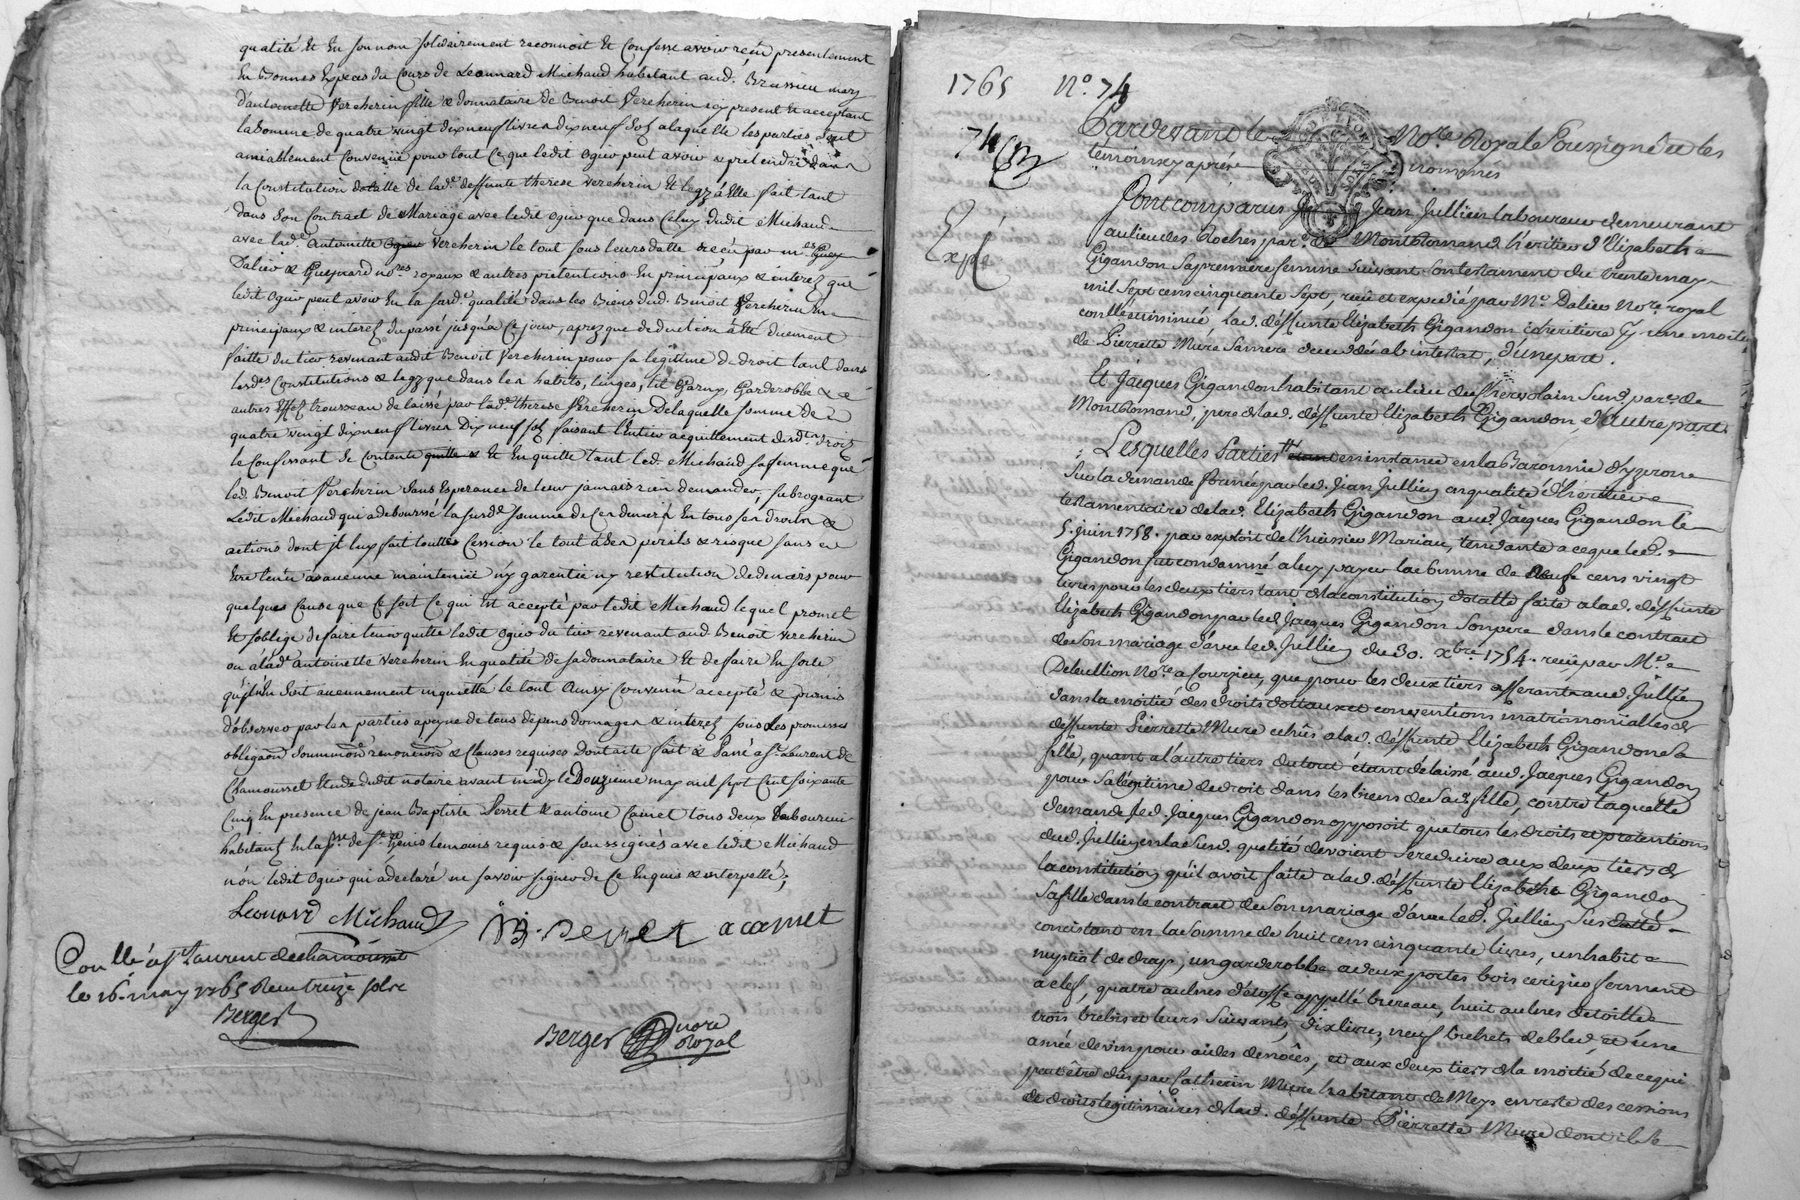 qualité Et En son nom solidairement reconnoit Et Confesse avoir reçu presentement
En Bonnes Especes du Cours de Leonnard Michaud habitant aud. Brussieu mary
d'antoinette Vercherin fille & donnataire de Benoit Vercherin icy present Et acceptant
la Somme de quatre vingt dix neuf livres dix neuf Sols a laquelle les parties Sont
amiablement Convenüe pour tout Ce que ledit Ogier peut avoir & pretendre dans
la Constitution dotalle de lade. deffunte therese Vercherin Et legz à Elle fait tant
dans Son Contract de Mariage avec ledit Ogier que dans Celuy dudit Michaud
avec lade. Antoinette Ogier Vercherin le tout sous leurs datte reçeu par Mes. Guex
Dalier & Gueynard nores royaux & autres pretentions En principaux & interez que
ledit Ogier peut avoir En la susde. qualité dans les Biens dud. Benoit Vercherin En
principaux & interez du passé jusqu'a Ce jour, apres que deduction à Eté duement
faitte du tier revenant audit Benoit Vercherin pour sa legitime de droit tant dans
lesdes Constitutions & legz que dans les habits, linges, lit Garny, Garderobbe &
autres Effez trousseau delaissé par lade. therese Vercherin De laquelle Somme de
quatre vingt dix neuf livres Dix neuf sols faisant l'Entier acquittement desdts Droits
le Confessant Se Contente quitte & Et En quitte tant led. Michaud sa femme que
led. Benoit Vercherin Sans Esperance de leur jamais rien demander, subrogeant
Ledit Michaud qui a deboursé la susde. somme de Ces deniers En tous ses droits &
actions dont jl luy fait touttes Cession le tout à Ses perils & risque sans
Etre tenu a aucune maintenüe ny garentie ny restitution de deniers pour
quelques Cause que Ce soit Ce qui Est accepté par ledit Michaud lequel promet
Et s'oblige de faire tenir quitte ledit Ogier du tier revenant aud Benoit Vercherin
ou à lade. Antoinette Vercherin En qualité de sa donnataire Et de faire En sorte
qu'jl n'En Soit aucunement inquietté le tout Ainsy Convenu accepté & promis
d'observer par les parties a peyne de tous depens domages & interez sous Les promesses
obligaons Soummons renonions & Clauses requises Dont acte fait & Passé a St. Laurent de
Chamousset Etude dudit notaire avant midy le Douzieme may mil sept Cent soixante
Cinq En presence de jean Baptiste Perret & antoine Camet tous deux laboureur
habitans En la psse. de St. Genis temoins requis & soussignés avec ledit Michaud
n'on ledit Ogier qui a declaré ne savoir signer de Ce Enquis & interpellé;
Leonard Michaud J.B. Perret a camet
Conllé a St Laurent de chamousset
le 16. may 1765 Reçu treize sols
Berger
Berger nore royal
1765 No. 74
74
Expé
Pardevant le Nore. Royal Soussigné et les
temoins cy après nommés
Sont comparus Jean Jullien laboureur demeurant
au lieu des Roches parse. de Montromand héritier d'Elizabeth
Gigandon Sa premiere femme suivant son testament du trente may
mil Sept cens cinquante Sept, reçu et expedié par Me. Dalier Nore. royal
conllé et insinué, lad. déffunte Elizabeth Gigandon coheritiere p.r une moitié
de Pierrette Mure Sa mere decedée ab intestat, d'une part.
Et Jacques Gigandon habitant au lieu de susd. parse. de
Montromand, pere de lad. déffunte Elizabeth Gigandon, d'autre part.
Lesquelles Parties étant en instance en la Baronnie d'yzeron
Sur la demande formée par led. Jean Jullien en qualité d'héritier
testamentaire de lad. Elizabeth Gigandon aud. Jacques Gigandon le
5. juin 1758. par exploit de l'huissier Mariau, tendante a ce que led.
Gigandon fut condamné a luy payer la Somme de Neufs cens vingt
livres pour les deux tiers tant de la constitution dotalle faite a lad. déffunte
Elizabeth Gigandon par led. Jacques Gigandon Son pere dans le contract
de Son mariage d'avec led. Jullien du 30. xbre. 1754. reçu par Me.
Delullion Nore. a Courzieu, que pour les deux tiers afferants aud. Jullien
dans la moitié des droits dottaux et conventions matrimonialles de
deffunte Pierrette Mure échûs a lad. déffunte Elizabeth Gigandon Sa
fille, quant a l'autre tiers du tout étant délaissé aud. Jacques Gigandon
pour Sa légitime de droit dans les biens de Sad. fille, contre laquelle
demande led. Jacques Gigandon opposoit que tous les droits et prétentions
dud. Jullien en lad. qualité devoient Se reduire aux deux tiers de
la constitution qu'il avoit faite a lad. déffunte Elizabeth Gigandon
Sa fille dans le contract de Son mariage d'avec led. Jullien Sus datté
concistant en la Somme de huit cens cinquante livres, un habit
myptiat de drap, un garderobbe a deux portes bois cerizier fermant
a clef, quatre aulnes d'étoffe appellé bureau, huit aulnes de toille
trois brebis et leurs Suivants, dix livres, neuf bichets de bled, et une
anée de vin pour aides de nôces, et aux deux tiers de la moitié de ce qui
peut être dû par Catherin Mure habitant de Meys en reste des cessions
de droits légitimaires de lad. déffunte Pierrette Mure dont il Se